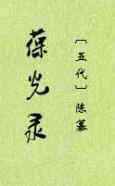 葆光录
〔五代〕陈纂